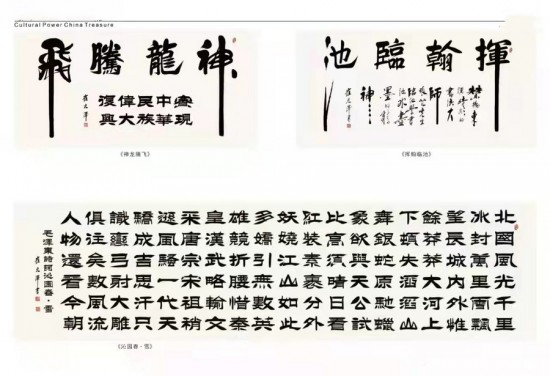 Cultural Power China Treasure
神龍騰飛
實現
中華
民族
偉大
復興
《神龙腾飞》
揮翰臨池
《挥翰临池》
北國風光千里
冰封萬里雪飄
望長城內外惟
餘莽莽大河上
下頓失滔滔山
舞銀蛇原馳蠟
象欲與天公試
比高須晴日看
紅裝素裹分外
妖嬈江山如此
多嬌引無數英
雄競折腰惜秦
皇漢武略輸文
采唐宗宋祖稍
遜風騷一代天
驕成吉思汗只
識彎弓射大雕
俱往矣數風流
人物還看今朝
毛澤東詩詞沁園春·雪
《沁园春·雪》